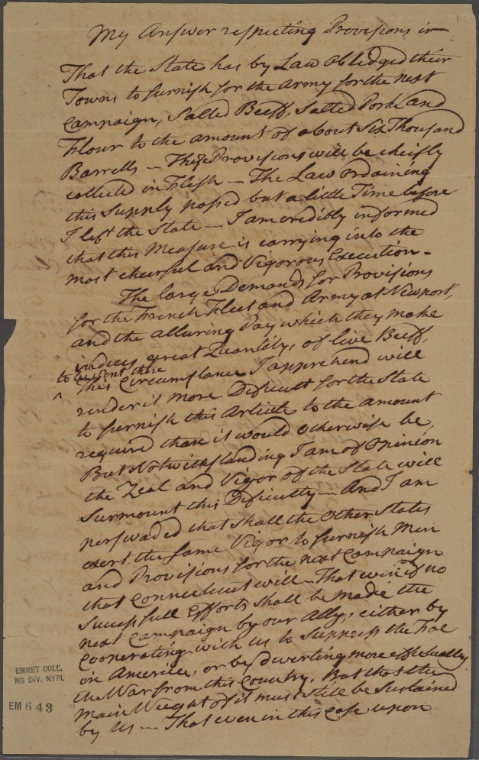 My Answer respecting Provisions is
That the State has by Law obledged their
Towns to furnish for the Army for the next
Campaign, Salted Beeff, Salted Pork and
Flour to the amount of about Six Thousand
Barrells — These Provisions will be cheifly
collected in Flesh — The Law ordaining
this Supply passed but a little Time before
I left the State — I am credibly informed
that this Measure is carrying into the
most chearful and Vigorous Execution —
The large Demands for Provisions
for the French Fleet and Army at Newport,
and the alluring Pay which they make
induces great Quantity, of live Beeff,
to be sent there
this Circumstance I apprehend will
render it more Difficult for the State
to furnish this Article to the amount
required than it would otherwise be,
But Notwithstanding I am of Opinion
the Zeal and Vigor of the State will
Surmount this Difficulty — And I am
perswaded that shall the other States
exert the same Vigor to furnish Men
and Provisions for the next Campaign
that Connecticut will — That even if no
Successfull Efforts shall be made the
next Campaign by our Ally, either by
Cooperating with us to Suppress the Foe
in America, or by diverting more effectually
the War from this Country, but that the
Main Weight of it must still be Sustained
by Us — That even in this Case upon
EMMET COLL.
MS DIV. NYPL
EM 643